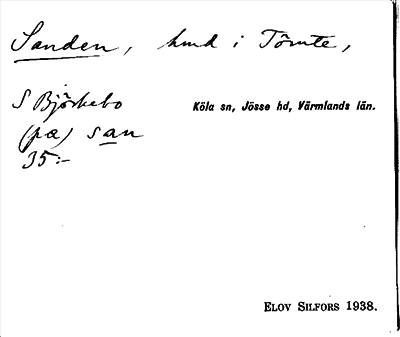 Sanden, hmd i Tömte,
S Björkebo
Köla sn, Jösse hd, Värmlands län.
(pa) san
35:-
ELOV SILFORS 1938.